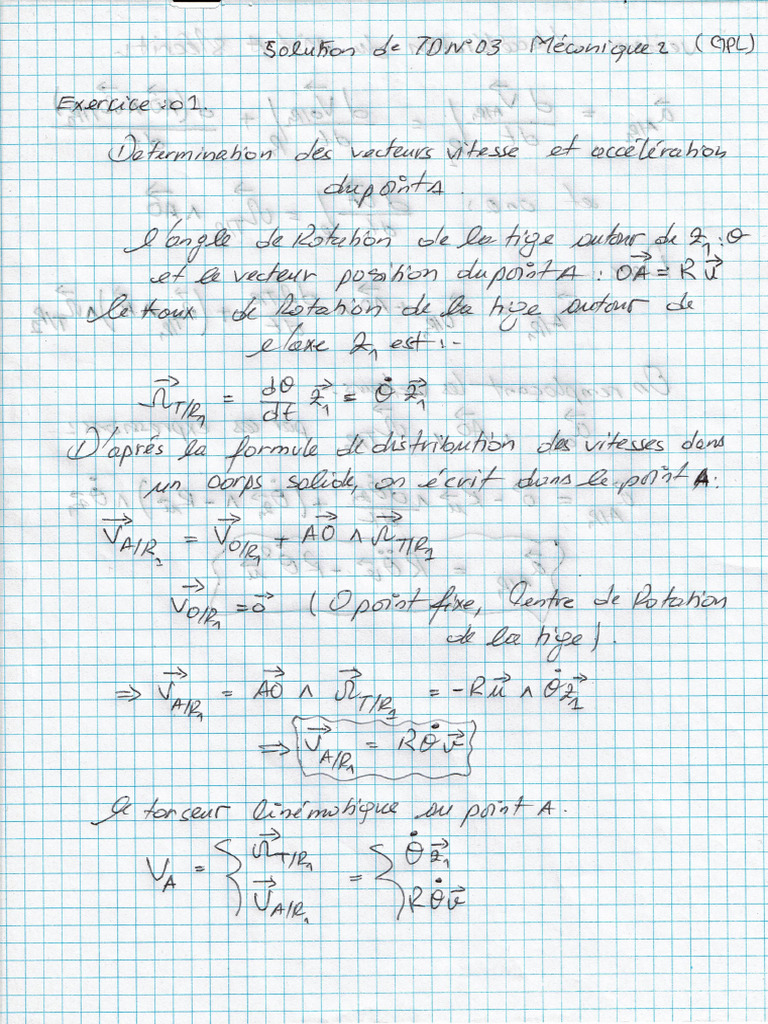 Solution de TD N° 03 Mécanique 2 (GPL)
Exercice : 01.
Determination des vecteurs vitesse et accélération
du point A.
l'angle de Rotation de la tige autour de z₁ : θ
et le vecteur position du point A : OA⃗ = R u⃗
le taux de Rotation de la tige autour de
l'axe z₁ est :-
Ω⃗_T/R₁ = dθ/dt z⃗₁ = θ̇ z⃗₁
D'après la formule de distribution des vitesses dans
un corps solide, on écrit dans le point A:
V⃗_A/R₁ = V⃗_O/R₁ + AO⃗ ∧ Ω⃗_T/R₁
V⃗_O/R₁ = 0⃗ (O point fixe, Centre de Rotation
de la tige).
⇒ V⃗_A/R₁ = AO⃗ ∧ Ω⃗_T/R₁ = -R u⃗ ∧ θ̇ z⃗₁
⇒ V⃗_A/R₁ = R θ̇ v⃗
le torseur Cinématique au point A.
V_A = { Ω⃗_T/R₁ = { θ̇ z⃗₁
V⃗_A/R₁ R θ̇ v⃗